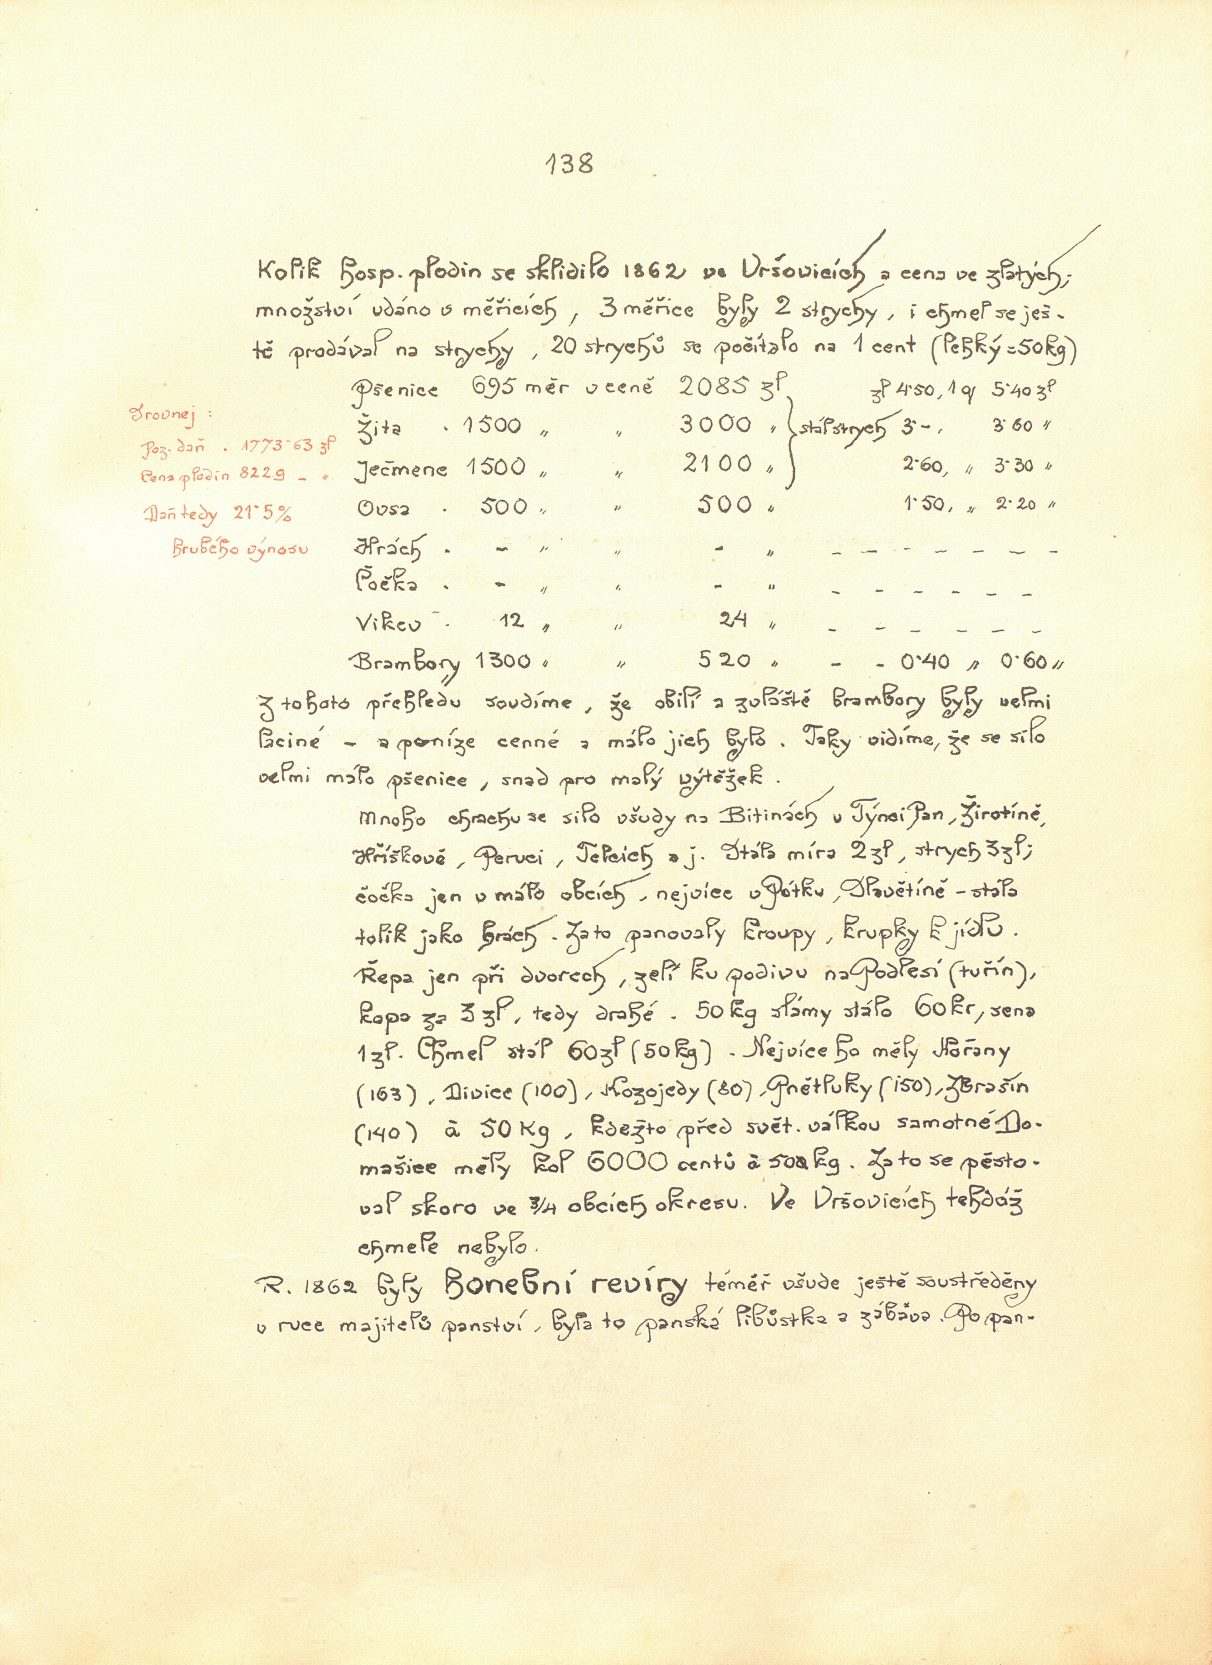 138
Kolik hosp. plodin se sklidilo 1862 ve Vršovicích a cena ve zlatých;
množství udáno v měřicích, 3 měřice byly 2 strychy, i chmel se ješ-
tě prodával na strychy, 20 strychů se počítalo na 1 cent (lehký = 50kg)
Pšenice 695 měr v ceně 2085 zl zl 4·50, 1 q 5·40 zl
Žita . 1500 „ „ 3000 „ stál strych 3·-, 3·60 „
Ječmene 1500 „ „ 2100 „ 2·60, „ 3·30 „
Ovsa . 500 „ „ 500 „ 1·50, „ 2·20 „
Hrách . - „ „ - „ - - - - - - -
Čočka . - „ „ - „ - - - - - -
Vikev . 12 „ „ 24 „ - - - - - -
Brambory 1300 „ „ 520 „ - - 0·40 „ 0·60 „
Srovnej :
Poz. daň . 1773·63 zl
Cena plodin 8229 - „
Daň tedy 21·5%
hrubého výnosu
Z tohoto přehledu soudíme, že obilí a zvláště brambory byly velmi
laciné - a peníze cenné a málo jich bylo. Taky vidíme, že se silo
velmi málo pšenice, snad pro malý výtěžek.
Mnoho chrachu se silo všudy na Bitinách v Týnci Pan., Žirotíně,
Hříškově, Peruci, Telcích a j. Stála míra 2 zl, strych 3 zl;
čočka jen v málo obcích, nejvíce v Pátku, Slavětíně - stála
tolik jako hrách. Za to panovaly kroupy, krupky k jídlu.
Řepa jen při dvorech, zelí ku podivu na Podlesí (tuřín),
kopa za 3 zl, tedy drahé. 50 kg slámy stálo 60 kr, sena
1 zl. Chmel stál 60 zl (50 kg). Nejvíce ho měly Hořany
(163), Divice (100), Kozojedy (80), Pnětluky (150), Zbrašín
(140) à 50 Kg, kdežto před svět. válkou samotné Do-
mašice měly kol 6000 centů à 50 kg. Za to se pěsto-
val skoro ve 3/4 obcích okresu. Ve Vršovicích tehdáž
chmele nebylo.
R. 1862 byly honební revíry téměř všude ještě soustředěny
v ruce majitelů panství, byla to panská libůstka a zábava. Po pan-